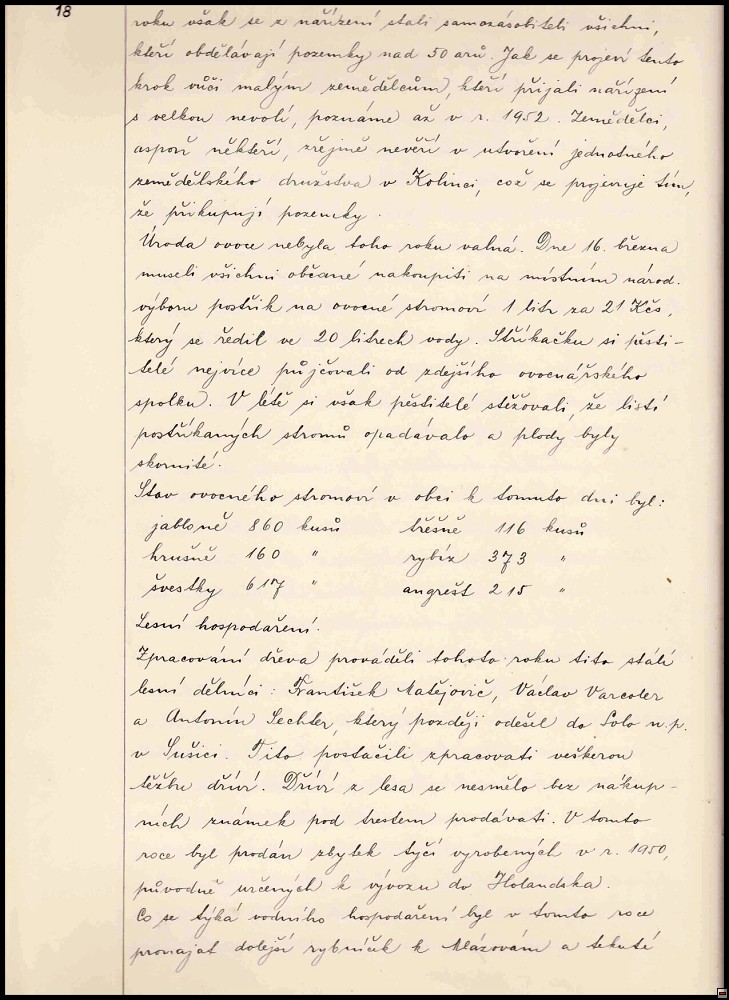 18
roku však se z nařízení stali samozásobiteli všichni,
kteří obdělávají pozemky nad 50 arů. Jak se projeví tento
krok vůči malým zemědělcům, kteří přijali nařízení
s velkou nevolí, poznáme až v r. 1952. Zemědělci,
aspoň někteří, zřejmě nevěří v utvoření jednotného
zemědělského družstva v Kolinci, což se projevuje tím,
že přikupují pozemky.
Úroda ovoce nebyla toho roku valná. Dne 16. března
museli všichni občané nakoupiti na místním národ.
výboru postřik na ovocné stromoví 1 litr za 21 Kčs,
který se ředil ve 20 litrech vody. Stříkačku si pěsti-
telé nejvíce půjčovali od zdejšího ovocnářského
spolku. V létě si však pěstitelé stěžovali, že listí
postříkaných stromů opadávalo a plody byly
skvrnité.
Stav ovocného stromoví v obci k tomuto dni byl:
jabloně 860 kusů třešně 116 kusů
hrušně 160 " rybíz 373 "
švestky 617 " angrešt 215 "
Lesní hospodaření.
Zpracování dřeva prováděli tohoto roku tito stálí
lesní dělníci: František Matějovič, Václav Varcoler
a Antonín Sechter, který později odešel do Solo n.p.
v Sušici. Tito postačili zpracovati veškerou
těžbu dříví. Dříví z lesa se nesmělo bez nákup-
ních známek pod trestem prodávati. V tomto
roce byl prodán zbytek tyčí vyrobených v r. 1950,
původně určených k vývozu do Holandska.
Co se týká vodního hospodaření byl v tomto roce
pronajat dolejší rybníček k Mlázovům a tekuté